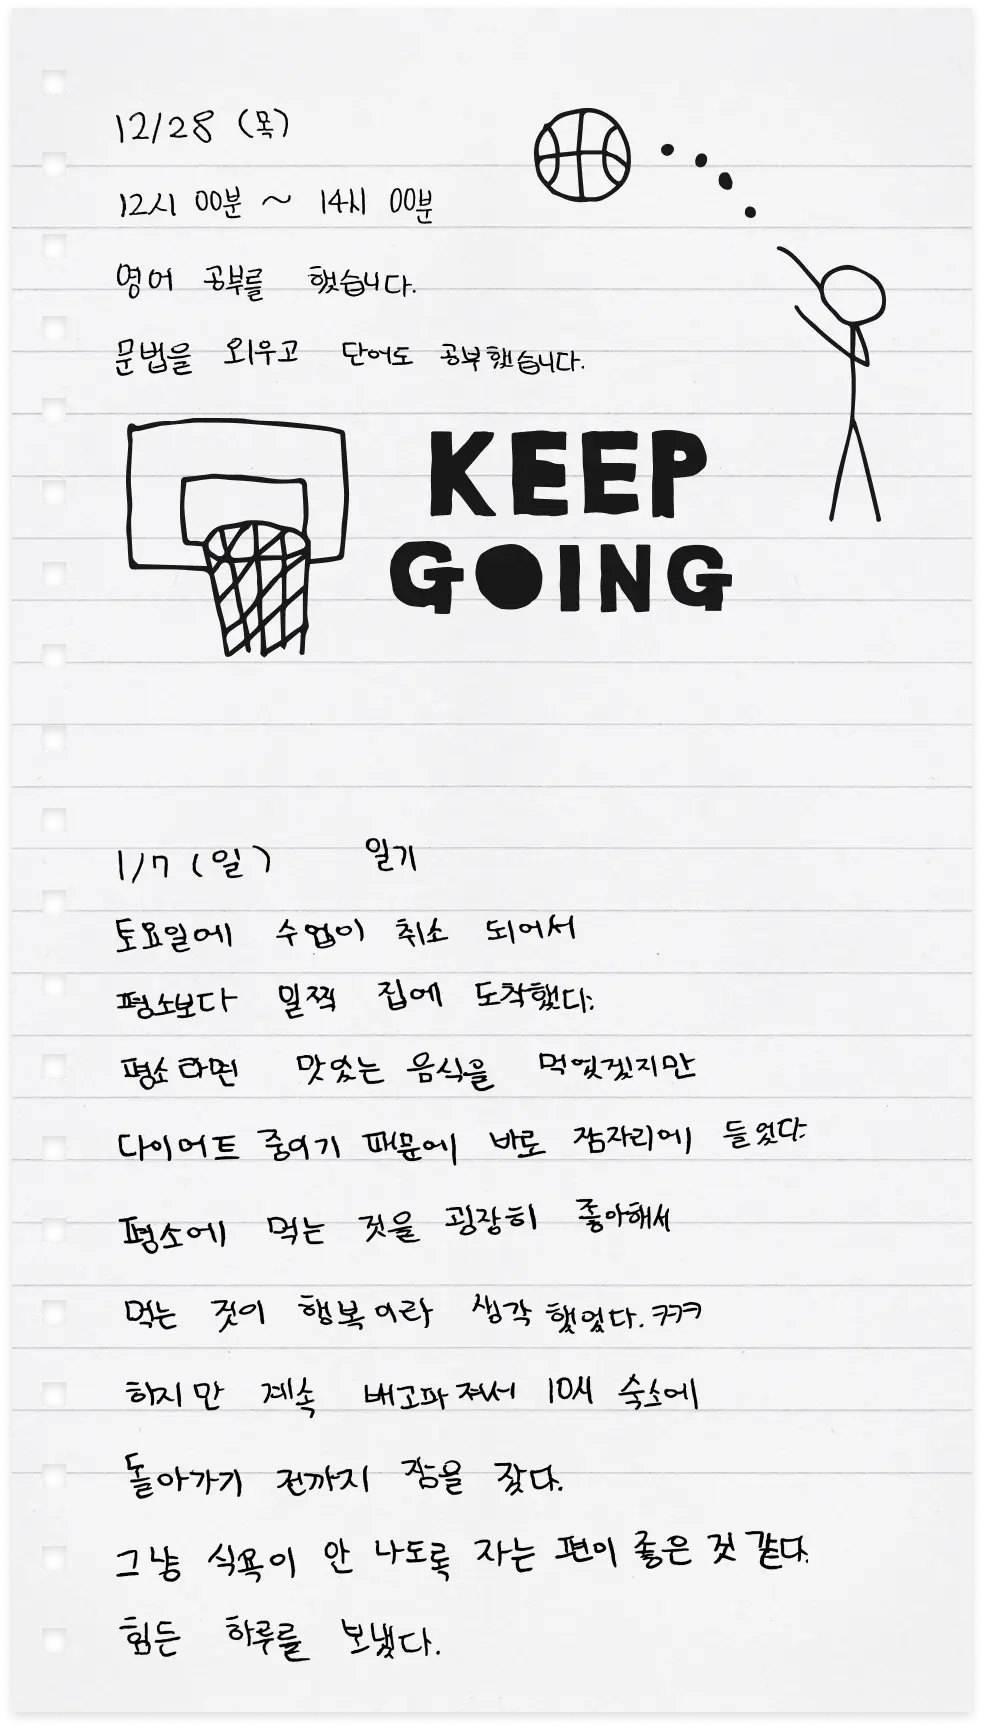 12/28 (목)
12시 00분 ~ 14시 00분
영어 공부를 했습니다.
문법을 외우고 단어도 공부했습니다.
KEEP
GOING
1/7 (일) 일기
토요일에 수업이 취소 되어서
평소보다 일찍 집에 도착했다.
평소라면 맛있는 음식을 먹었겠지만
다이어트 중이기 때문에 바로 잠자리에 들었다.
평소에 먹는 것을 굉장히 좋아해서
먹는 것이 행복이라 생각했었다. ㅋㅋㅋ
하지만 계속 배고파져서 10시 숙소에
돌아가기 전까지 잠을 잤다.
그냥 식욕이 안 나도록 자는 편이 좋은 것 같다.
힘든 하루를 보냈다.